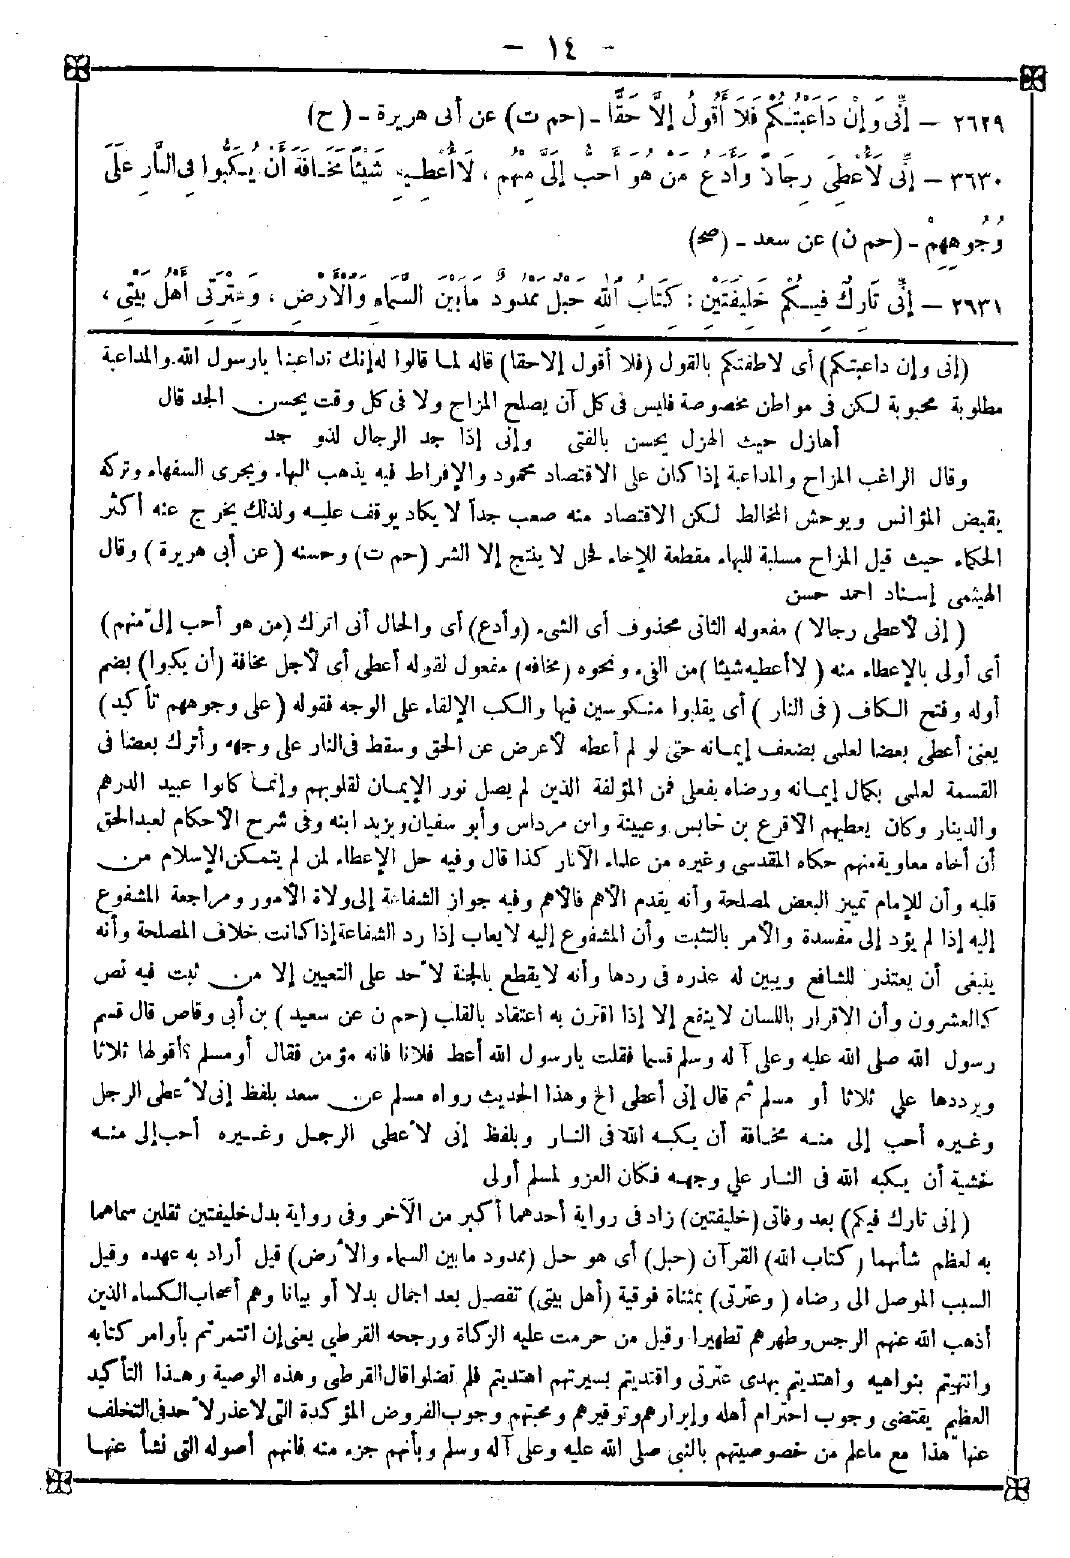 - ١٤ -
٢٦٢٩ - إِنِّى وَإِنْ دَاعَبْتُكُمْ فَلَا أَقُولُ إِلَّا حَقًّا - (حم ت) عن أبى هريرة - (ح)
٣٦٣٠ - إِنِّى لَأُعْطِى رِجَالاً وَأَدَعُ مَنْ هُوَ أَحَبُّ إِلَىَّ مِنْهُمْ ، لَا أُعْطِيهِ شَيْئًا مَخَافَةَ أَنْ يُكَبُّوا فِى النَّارِ عَلَى
وُجُوهِهِمْ - (حم ن) عن سعد - (صح)
٢٦٣١ - إِنِّى تَارِكٌ فِيكُمْ خَلِيفَتَيْنِ : كِتَابُ اللهِ حَبْلٌ مَمْدُودٌ مَا بَيْنَ السَّمَاءِ وَالْأَرْضِ ، وَعِتْرَتِى أَهْلُ بَيْتِى ،
(إنى وإن داعبتكم) أى لاطفتكم بالقول (فلا أقول إلا حقا) قاله لما قالوا له إنك تداعبنا يارسول الله والمداعبة
مطلوبة محبوبة لكن فى مواطن مخصوصة فليس فى كل آن يصلح المزاح ولا فى كل وقت يحسن الجد قال
أهازل حيث الهزل يحسن بالفتى وإنى إذا جد الرجال لذو جد
وقال الراغب المزاح والمداعبة إذا كان على الاقتصاد محمود والإفراط فيه يذهب البهاء ويجرى السفهاء وتركه
يقبض المؤانس ويوحش المخالط لكن الاقتصاد منه صعب جداً لا يكاد يوقف عليه ولذلك يخرج عنه أكثر
الحكماء حيث قيل المزاح مسلبة للبهاء مقطعة للإخاء فحل لا ينتج إلا الشر (حم ت) وحسنه (عن أبى هريرة) وقال
الهيثمى إسناد احمد حسن
(إنى لأعطى رجالا) مفعوله الثانى محذوف أى الشىء (وأدع) أى والحال أنى اترك (من هو أحب إلىّ منهم)
أى أولى بالإعطاء منه (لا أعطيه شيئا) من الفىء ونحوه (مخافه) مفعول لقوله أعطى أى لأجل مخافة (أن يكبوا) بضم
أوله وفتح الكاف (فى النار) أى يقلبوا منكوسين فيها والكب الإلقاء على الوجه فقوله (على وجوههم تأكيد)
يعنى أعطى بعضا لعلمى بضعف إيمانه حتى لو لم أعطه لأعرض عن الحق وسقط فى النار على وجهه وأترك بعضا فى
القسمة لعلمى بكمال إيمانه ورضاه بفعلى فمن المؤلفة الذين لم يصل نور الإيمان لقلوبهم وإنما كانوا عبيد الدرهم
والدينار وكان يعطيهم الأقرع بن حابس وعيينة وابن مرداس وأبو سفيان ويزيد ابنه وفى شرح الأحكام لعبد الحق
أن أخاه معاوية منهم حكاه المقدسى وغيره من علماء الآثار كذا قال وفيه حل الإعطاء لمن لم يتمكن الإسلام من
قلبه وأن للإمام تمييز البعض لمصلحة وأنه يقدم الأهم فالأهم وفيه جواز الشفاعة إلى ولاة الأمور ومراجعة المشفوع
إليه إذا لم يؤد إلى مفسدة والأمر بالتثبت وأن المشفوع إليه لا يعاب إذا رد الشفاعة إذا كانت خلاف المصلحة وأنه
ينبغى أن يعتذر للشافع ويبين له عذره فى ردها وأنه لا يقطع بالجنة لأحد على التعيين إلا من ثبت فيه نص
كالعشرون وأن الاقرار باللسان لا ينفع إلا إذا اقترن به اعتقاد بالقلب (حم ن عن سعيد) بن أبى وقاص قال قسم
رسول الله صلى الله عليه وعلى آله وسلم قسما فقلت يارسول الله أعط فلانا فانه مؤمن فقال أومسلم ؟ أقولها ثلاثا
ويرددها علي ثلاثا أو مسلم ثم قال إنى أعطى الخ وهذا الحديث رواه مسلم عن سعد بلفظ إنى لأعطى الرجل
وغيره أحب إلى منه مخافة أن يكبه الله فى النار وبلفظ إنى لأعطى الرجل وغيره أحب إلى منه
خشية أن يكبه الله فى النار علي وجهه فكان العزو لمسلم أولى
(إنى تارك فيكم) بعد وفاتى (خليفتين) زاد فى رواية أحدهما أكبر من الآخر وفى رواية بدل خليفتين ثقلين سماهما
به لعظم شأنهما (كتاب الله) القرآن (حبل) أى هو حبل (ممدود ما بين السماء والأرض) قيل أراد به عهده وقيل
السبب الموصل الى رضاه (وعترتى) بمثناة فوقية (أهل بيتى) تفصيل بعد اجمال بدلا أو بيانا وهم أصحاب الكساء الذين
أذهب الله عنهم الرجس وطهرهم تطهيرا وقيل من حرمت عليه الزكاة ورجحه القرطي يعنى إن ائتمرتم بأوامر كتابه
وانتهيتم بنواهيه واهتديتم بهدى عترتى واقتديتم بسيرتهم اهتديتم فلم تضلوا قال القرطى وهذه الوصية وهذا التأكيد
العظيم يقتضى وجوب احترام أهله وإبرارهم وتوقيرهم ومحبتهم وجوب الفروض المؤكدة التى لا عذر لأحد فى التخلف
عنها هذا مع ماعلم من خصوصيتهم بالنبى صلى الله عليه وعلى آله وسلم وبأنهم جزء منه فانهم أصوله التى نشأ عنها